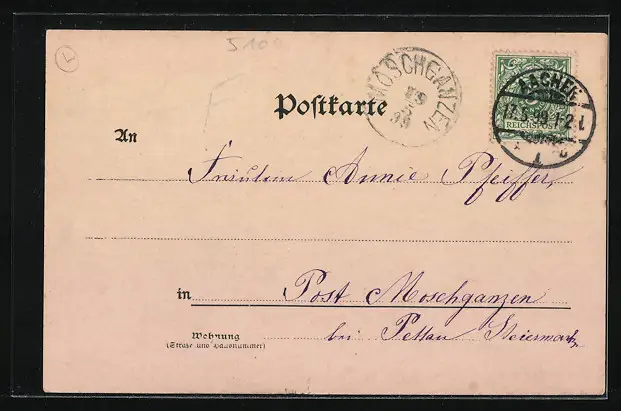 5100
MOSCHGANZEN
19
5
99
AACHEN
17.5.99.1-2 N.
REICHSPOST
Postkarte
An
Fräulein Annie Pfeiffer,
in Post Moschganzen
Wohnung
(Straße und Hausnummer)
bei Pettau Steiermark